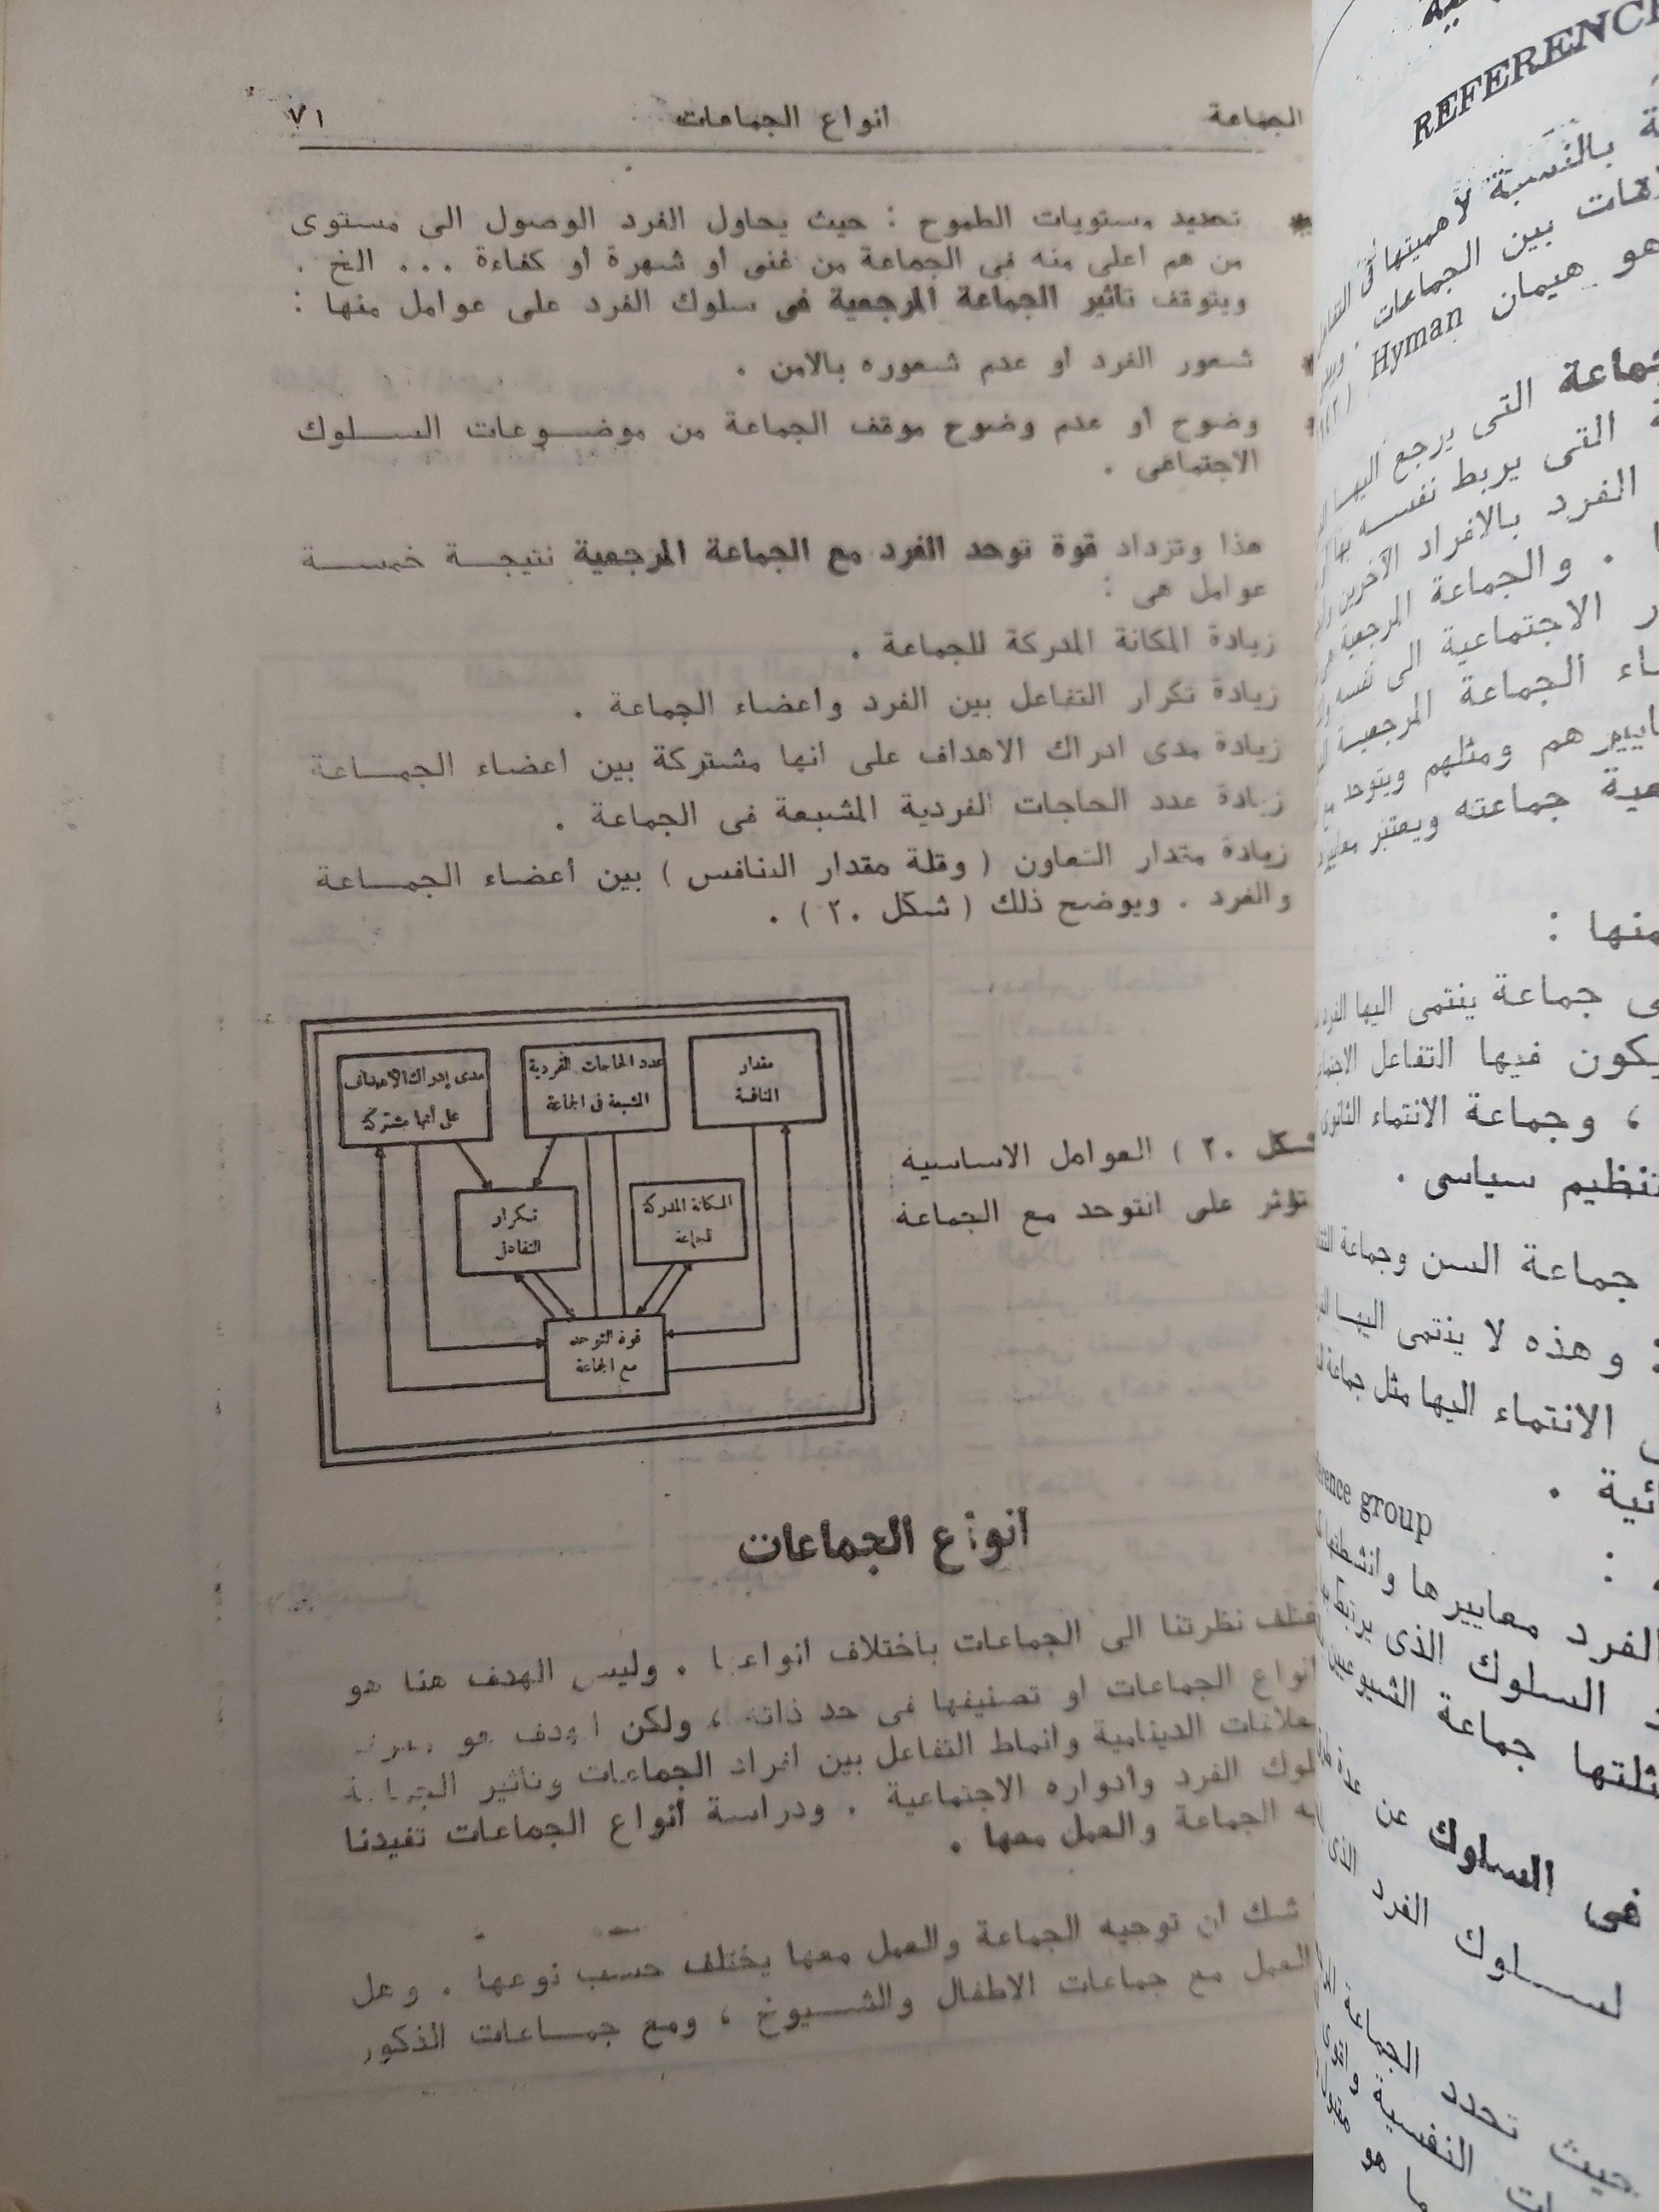 الجماعة
انواع الجماعات
٧١
* تحديد مستويات الطموح : حيث يحاول الفرد الوصول الى مستوى
من هم اعلى منه فى الجماعة من غنى أو شهرة أو كفاءة ... الخ .
ويتوقف تأثير الجماعة المرجعية فى سلوك الفرد على عوامل منها :
* شعور الفرد او عدم شعوره بالامن .
* وضوح او عدم وضوح موقف الجماعة من موضوعات السلوك
الاجتماعى .
هذا وتزداد قوة توحد الفرد مع الجماعة المرجعية نتيجة خمسة
عوامل هى :
زيادة المكانة المدركة للجماعة .
زيادة تكرار التفاعل بين الفرد واعضاء الجماعة .
زيادة مدى ادراك الاهداف على انها مشتركة بين اعضاء الجماعة
زيادة عدد الحاجات الفردية المشبعة فى الجماعة .
زيادة مقدار التعاون ( وقلة مقدار التنافس ) بين أعضاء الجماعة
والفرد . ويوضح ذلك ( شكل ٢٠ ) .
مقدار
النافسة
عدد الحاجات الفردية
المشبعة فى الجماعة
مدى إدراك الاهداف
على أنها مشتركة
المكانة المدركة
للجماعة
تكرار
التفاعل
قوة التوحد
مع الجماعة
شكل ٢٠ ) العوامل الاساسية
تؤثر على التوحد مع الجماعة
انواع الجماعات
نظرتنا الى الجماعات باختلاف انواعها . وليس الهدف هنا هو
انواع الجماعات او تصنيفها فى حد ذاته ، ولكن الهدف هو
الدينامية وانماط التفاعل بين افراد الجماعات وتأثير الجماعة
الفرد وأدواره الاجتماعية . ودراسة أنواع الجماعات تفيدنا
الجماعة والعمل معها .
شك ان توجيه الجماعة والعمل معها يختلف حسب نوعها .
العمل مع جماعات الاطفال والشيوخ ، ومع جماعات الذكور
REFERENCE
بالنسبة لأهميتها فى
بين الجماعات .
هو هيمان Hyman
التى يرجع اليها
التى يربط نفسه بها
الفرد بالافراد الآخرين
. والجماعة المرجعية
الاجتماعية الى نفسه
الجماعة المرجعية
ومثلهم ويتوحد مع
جماعته ويعتبر
منها :
جماعة ينتمى اليها الفرد
يكون فيها التفاعل
، وجماعة الانتماء الثانوى
تنظيم سياسى .
جماعة السن وجماعة
: وهذه لا ينتمى اليها
الانتماء اليها مثل جماعة
group
الفرد معاييرها وانشطتها
السلوك الذى يرتبط
جماعة الشيوعيين
فى السلوك عن عدة
لسلوك الفرد الذى
حيث تحدد الجماعة
النفسية
ما هو